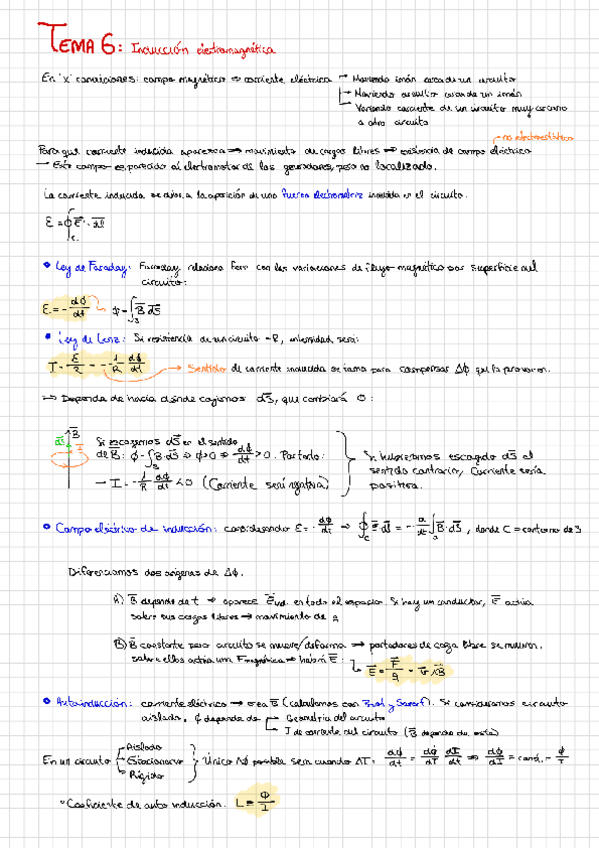 TEMA 6: Inducción electromagnética
En "x" condiciones: campo magnético ⇒ corriente eléctrica → Moviendo imán cerca de un circuito
→ Moviendo circuito cerca de un imán
→ Variando corriente de un circuito muy cercano
a otro circuito
no electrostático
Para que corriente inducida aparezca ⇒ movimiento de cargas libres ⇒ existencia de campo eléctrico
→ Este campo es parecido al electromotor de los generadores, pero no localizado.
La corriente inducida se a la aparición de una fuerza electromotriz inducida en el circuito.
ε = ∮_C E · dl
• Ley de Faraday: Faraday relaciona fem con las variaciones de flujo magnético por superficie del
circuito:
ε = - dϕ/dt ϕ = ∫_S B dS
• Ley de Lenz: Si resistencia de un circuito = R, intensidad será:
I = ε/R = - 1/R dϕ/dt → Sentido de corriente inducida se toma para compensar Δϕ que la provocan.
⇒ Depende de hacia dónde cojamos dS, que cambiará :
B dS I
Si escogemos dS en el sentido
de B: ϕ = ∫_S B · dS ⇒ ϕ > 0 ⇒ dϕ/dt > 0. Por tanto:
→ I = - 1/R dϕ/dt < 0 (Corriente será negativa)
Si hubiéramos escogido dS el
sentido contrario, Corriente sería
positiva.
• Campo eléctrico de inducción: considerando ε = - dϕ/dt ⇒ ∮_C E · dl = - d/dt ∫_S B · dS, donde C = contorno de S
Diferenciamos dos orígenes de Δϕ.
A) B depende de t ⇒ aparece E ind. en todo el espacio. Si hay un conductor, E actúa
sobre sus cargas libres ⇒ movimiento de q
B) B constante pero circuito se mueve/deforma ⇒ portadores de carga libre se mueven.
sobre ellos actúa una F magnética ⇒ habrá E:
E = F/q = v × B
• Autoinducción: corriente eléctrica → crea B (calculamos con Biot y Savart). Si consideramos circuito
aislado, ϕ depende de → Geometría del circuito
→ I de corriente del circuito (B depende de esta)
En un circuito { Aislado
Estacionario
Rígido
Único Δϕ posible será cuando ΔI: dϕ/dt = dϕ/dI dI/dt ⇒ dϕ/dI = const. = ϕ/I
° Coeficiente de auto inducción. L = ϕ/I